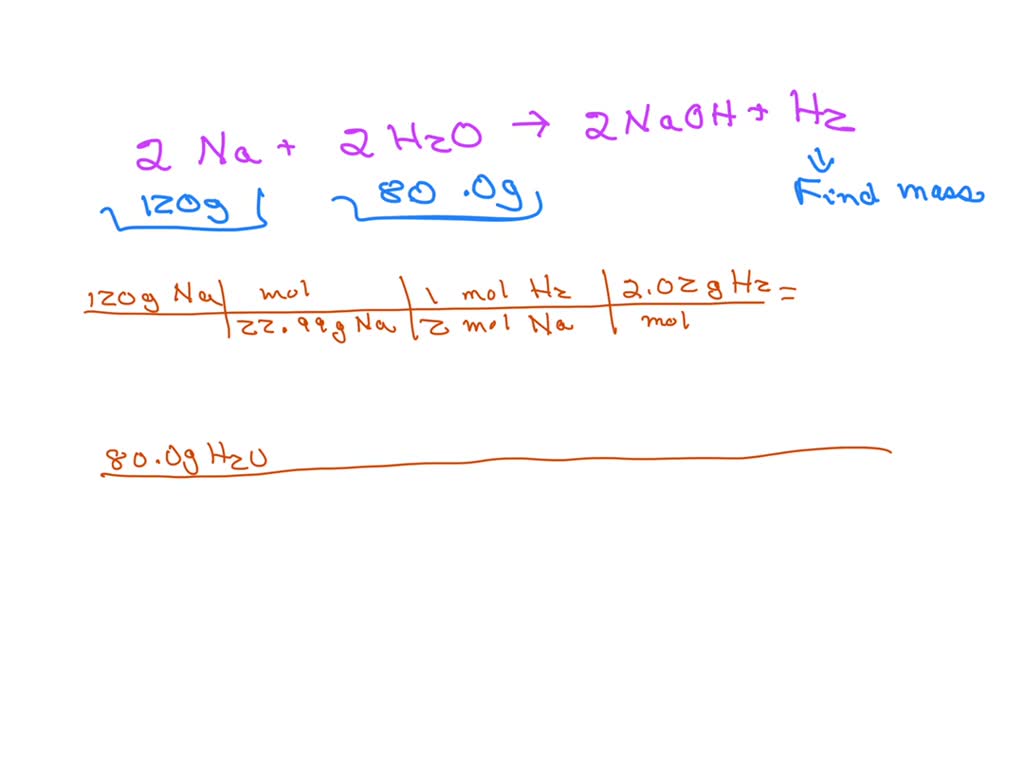 2 Na + 2 H2O → 2 NaOH + H2
120g 80.0g Find mass
120g Na | mol | 1 mol H2 | 2.02 g H2 =
22.99g Na | 2 mol Na | mol
80.0g H2O